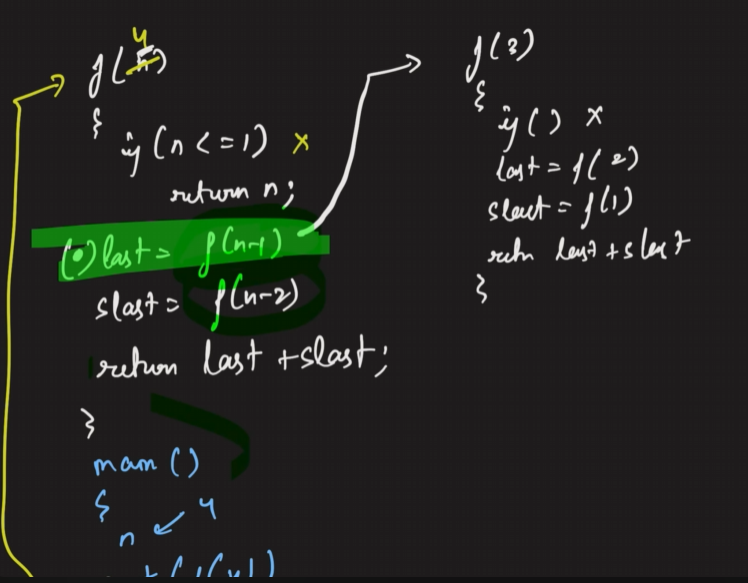 4
f(n)
{
if (n <= 1) x
return n;
(•) last = f(n-1)
slast = f(n-2)
return last + slast;
}
main ()
{
n ↙ 4
f(3)
{
if () x
last = f(2)
slast = f(1)
retn last + slast
}